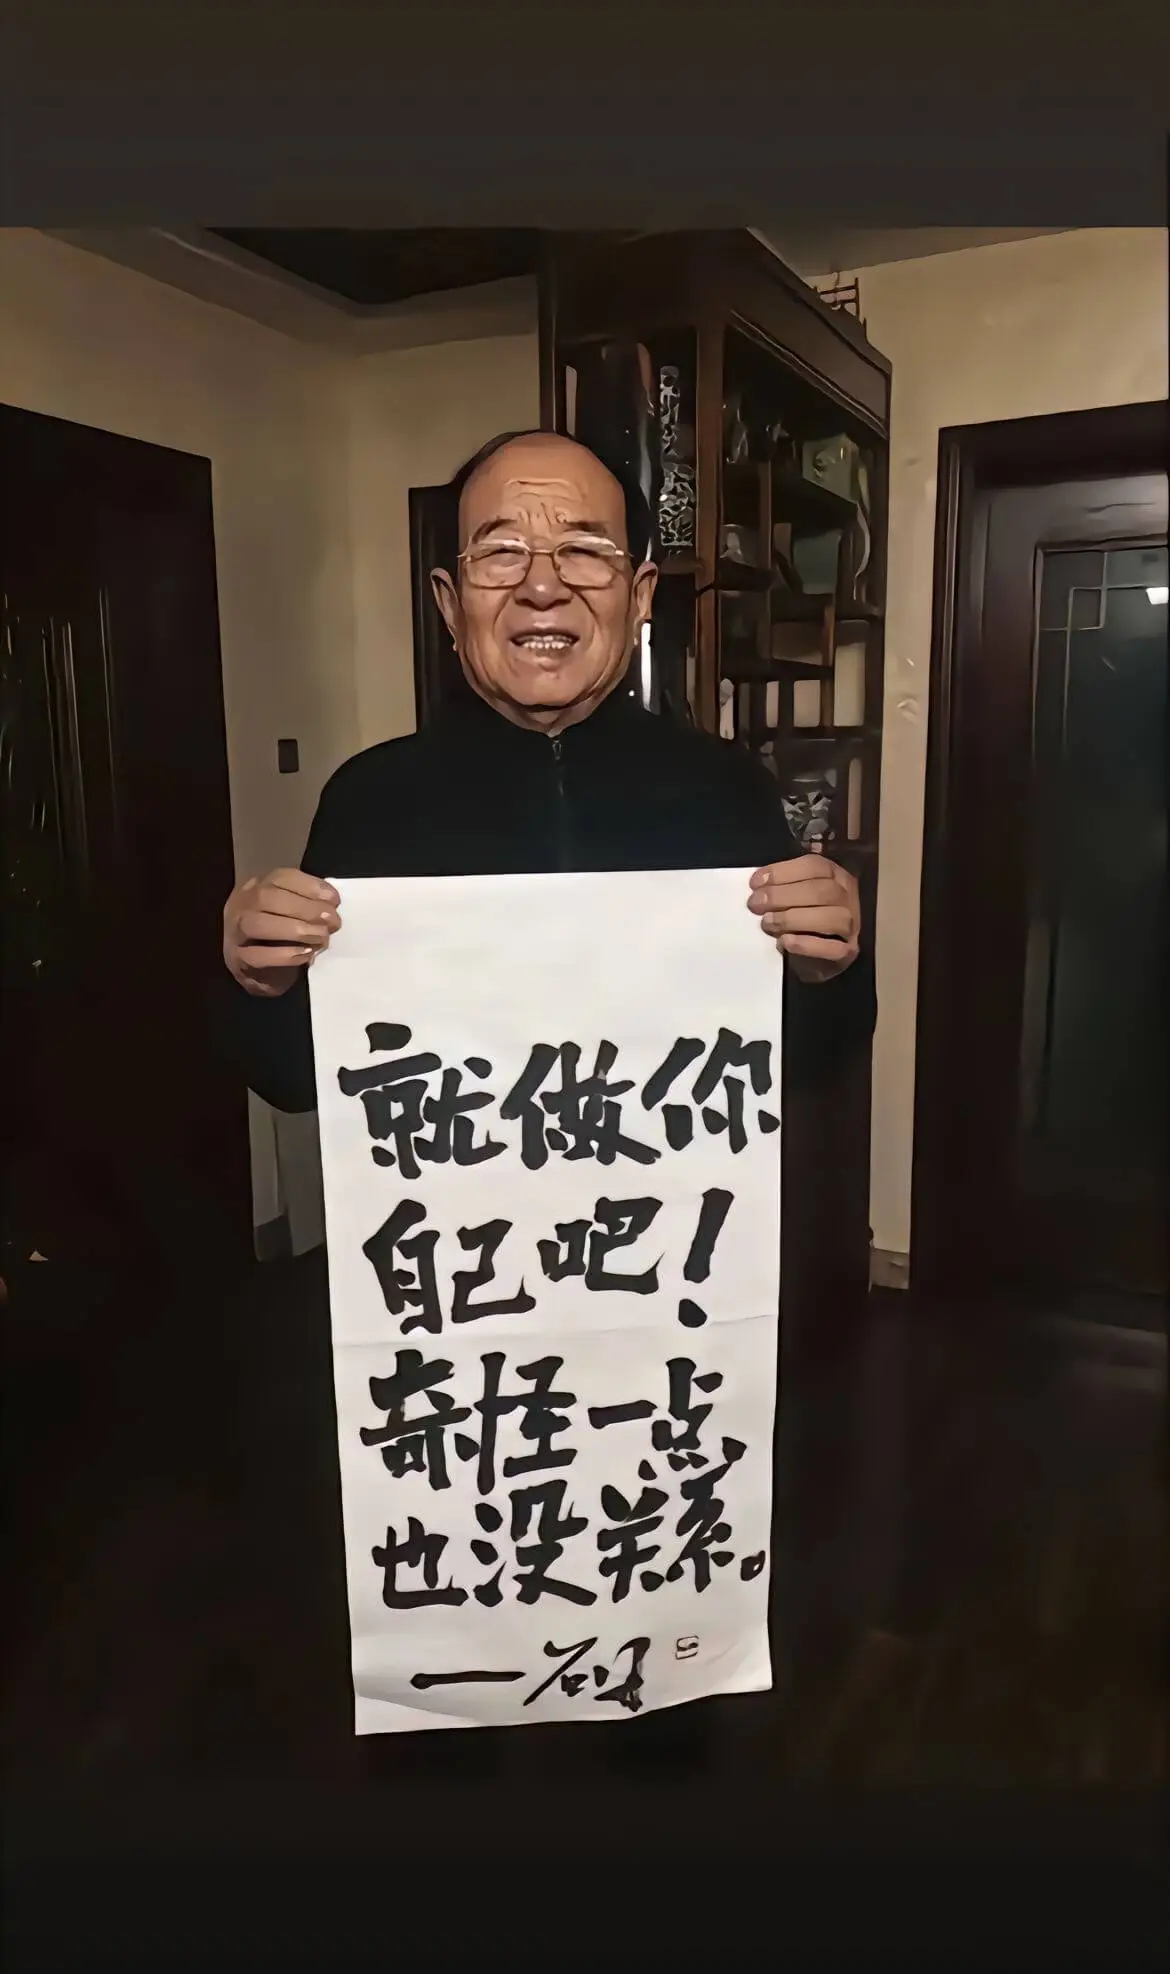 就做你
自己吧!
奇怪一点
也没关系。